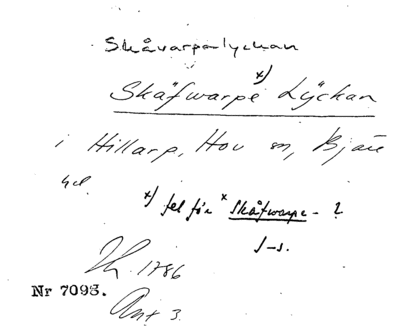 Skåvarpalyckan
Skäfwarpe x) Lÿckan
i Hillarp, Hov sn, Bjäre
hd.
x) fel för x Skåfwarpe- ?
J-s.
1786
Nr 7093.
Akt 3